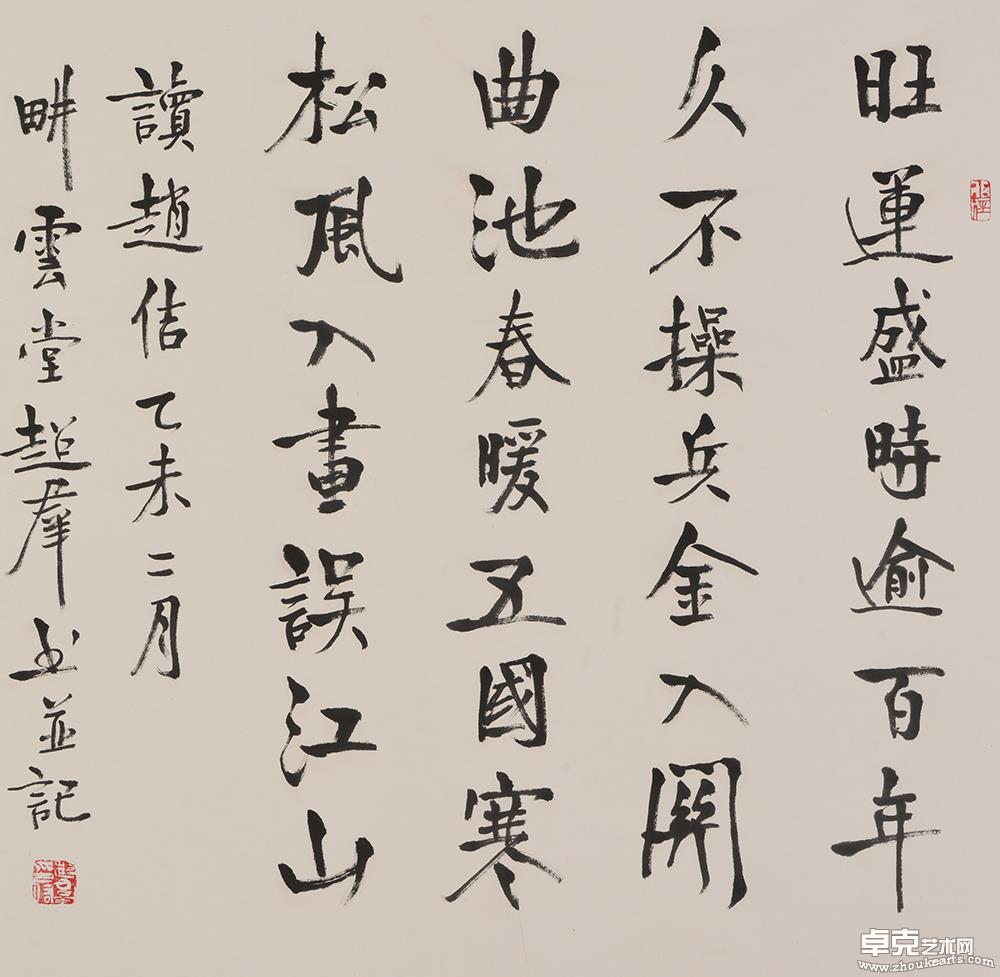 旺運盛時逾百年
久不操兵金入關
曲池春暖五國寒
松風入畫誤江山
讀趙佶乙未二月
畊雲堂超羣书並記
卓克艺术网
www.zhoukearts.com